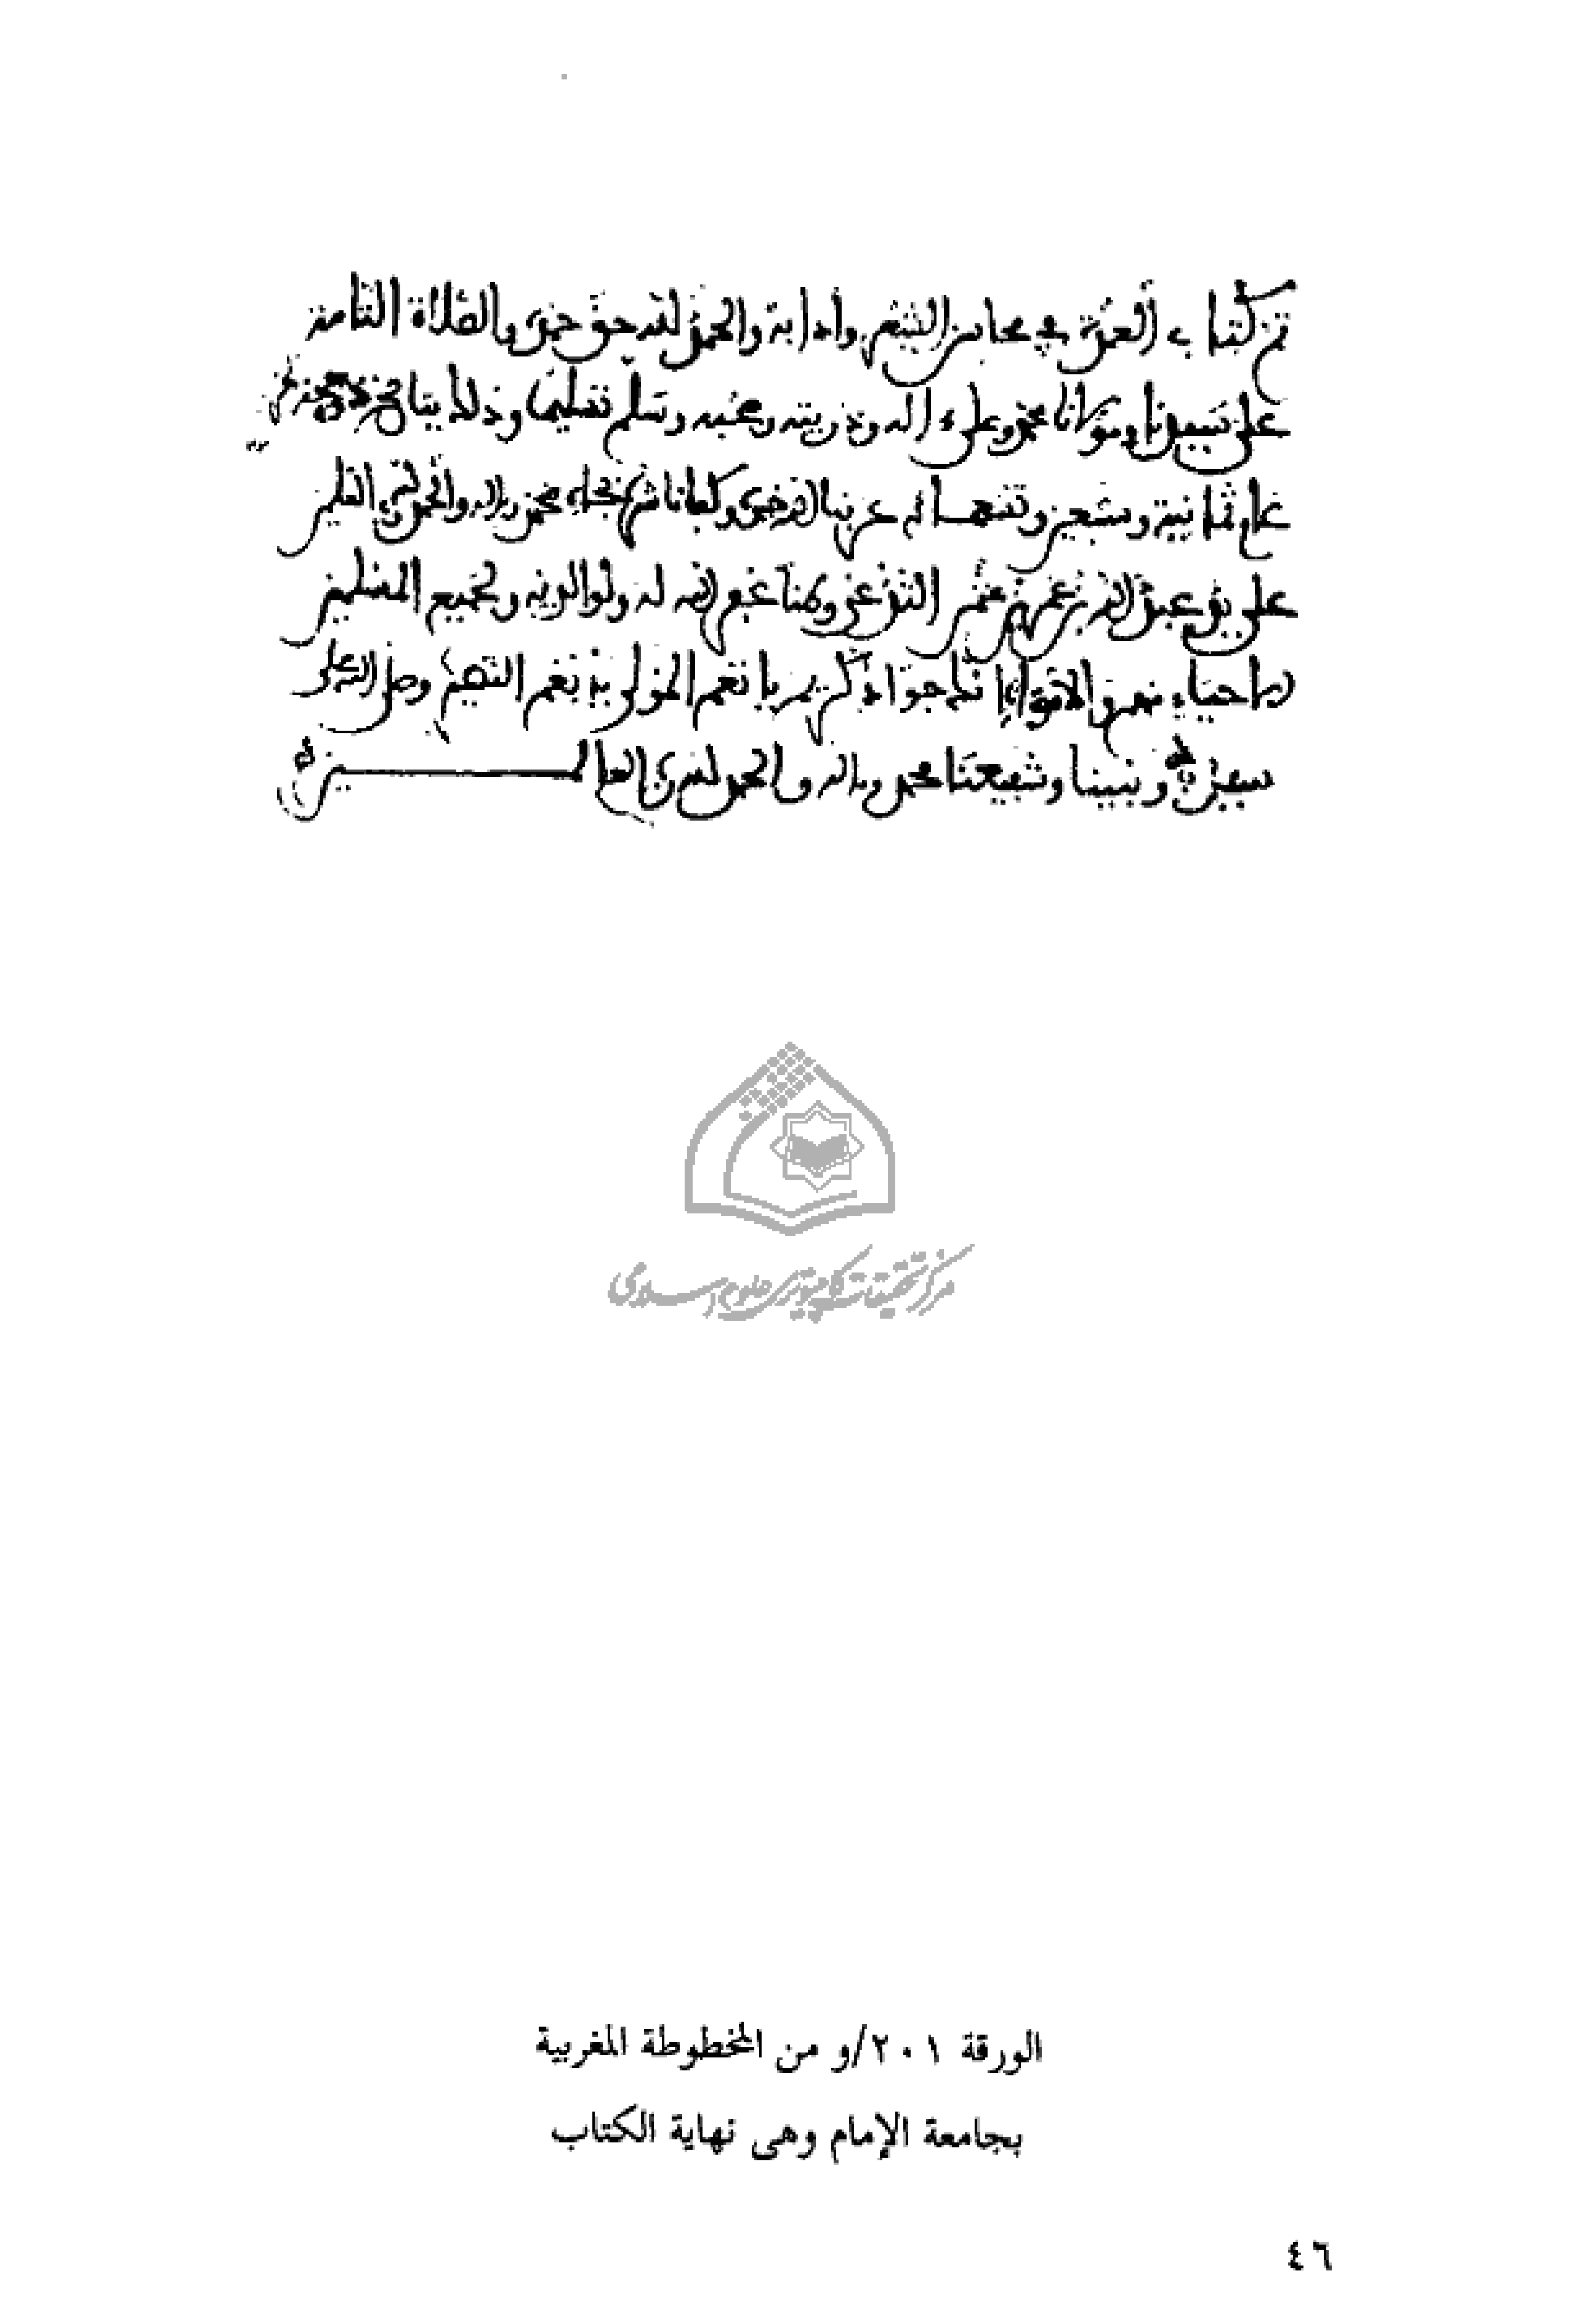 تم كتاب العمدة في محاسن الشعر وأدابه والحمد لله حق حمده والصلاة التامة
على سيدنا ومولانا محمد وعلى ءاله وذريته وصحبه وسلم تسليما وذلك بتاريخ
عام ثمانية وسبعين وتسعمائه عرفنا الله خيره وكفانا شره بجاه محمد وءاله والحمد لله
على يد عبد الله بن عمر بن عثمن غفر الله له ولوالديه ولجميع المسلمين
الاحياء منهم والاموات انك جواد كريم يا نعم المولى ويا نعم النصير وصلى الله على
سيدنا ونبينا وشفيعنا محمد وءاله والحمد لله رب العالمين
مركز تحقيقات كامپيوترى علوم اسلامى
الورقة ٢٠١/و من المخطوطة المغربية
بجامعة الإمام وهى نهاية الكتاب
٤٦